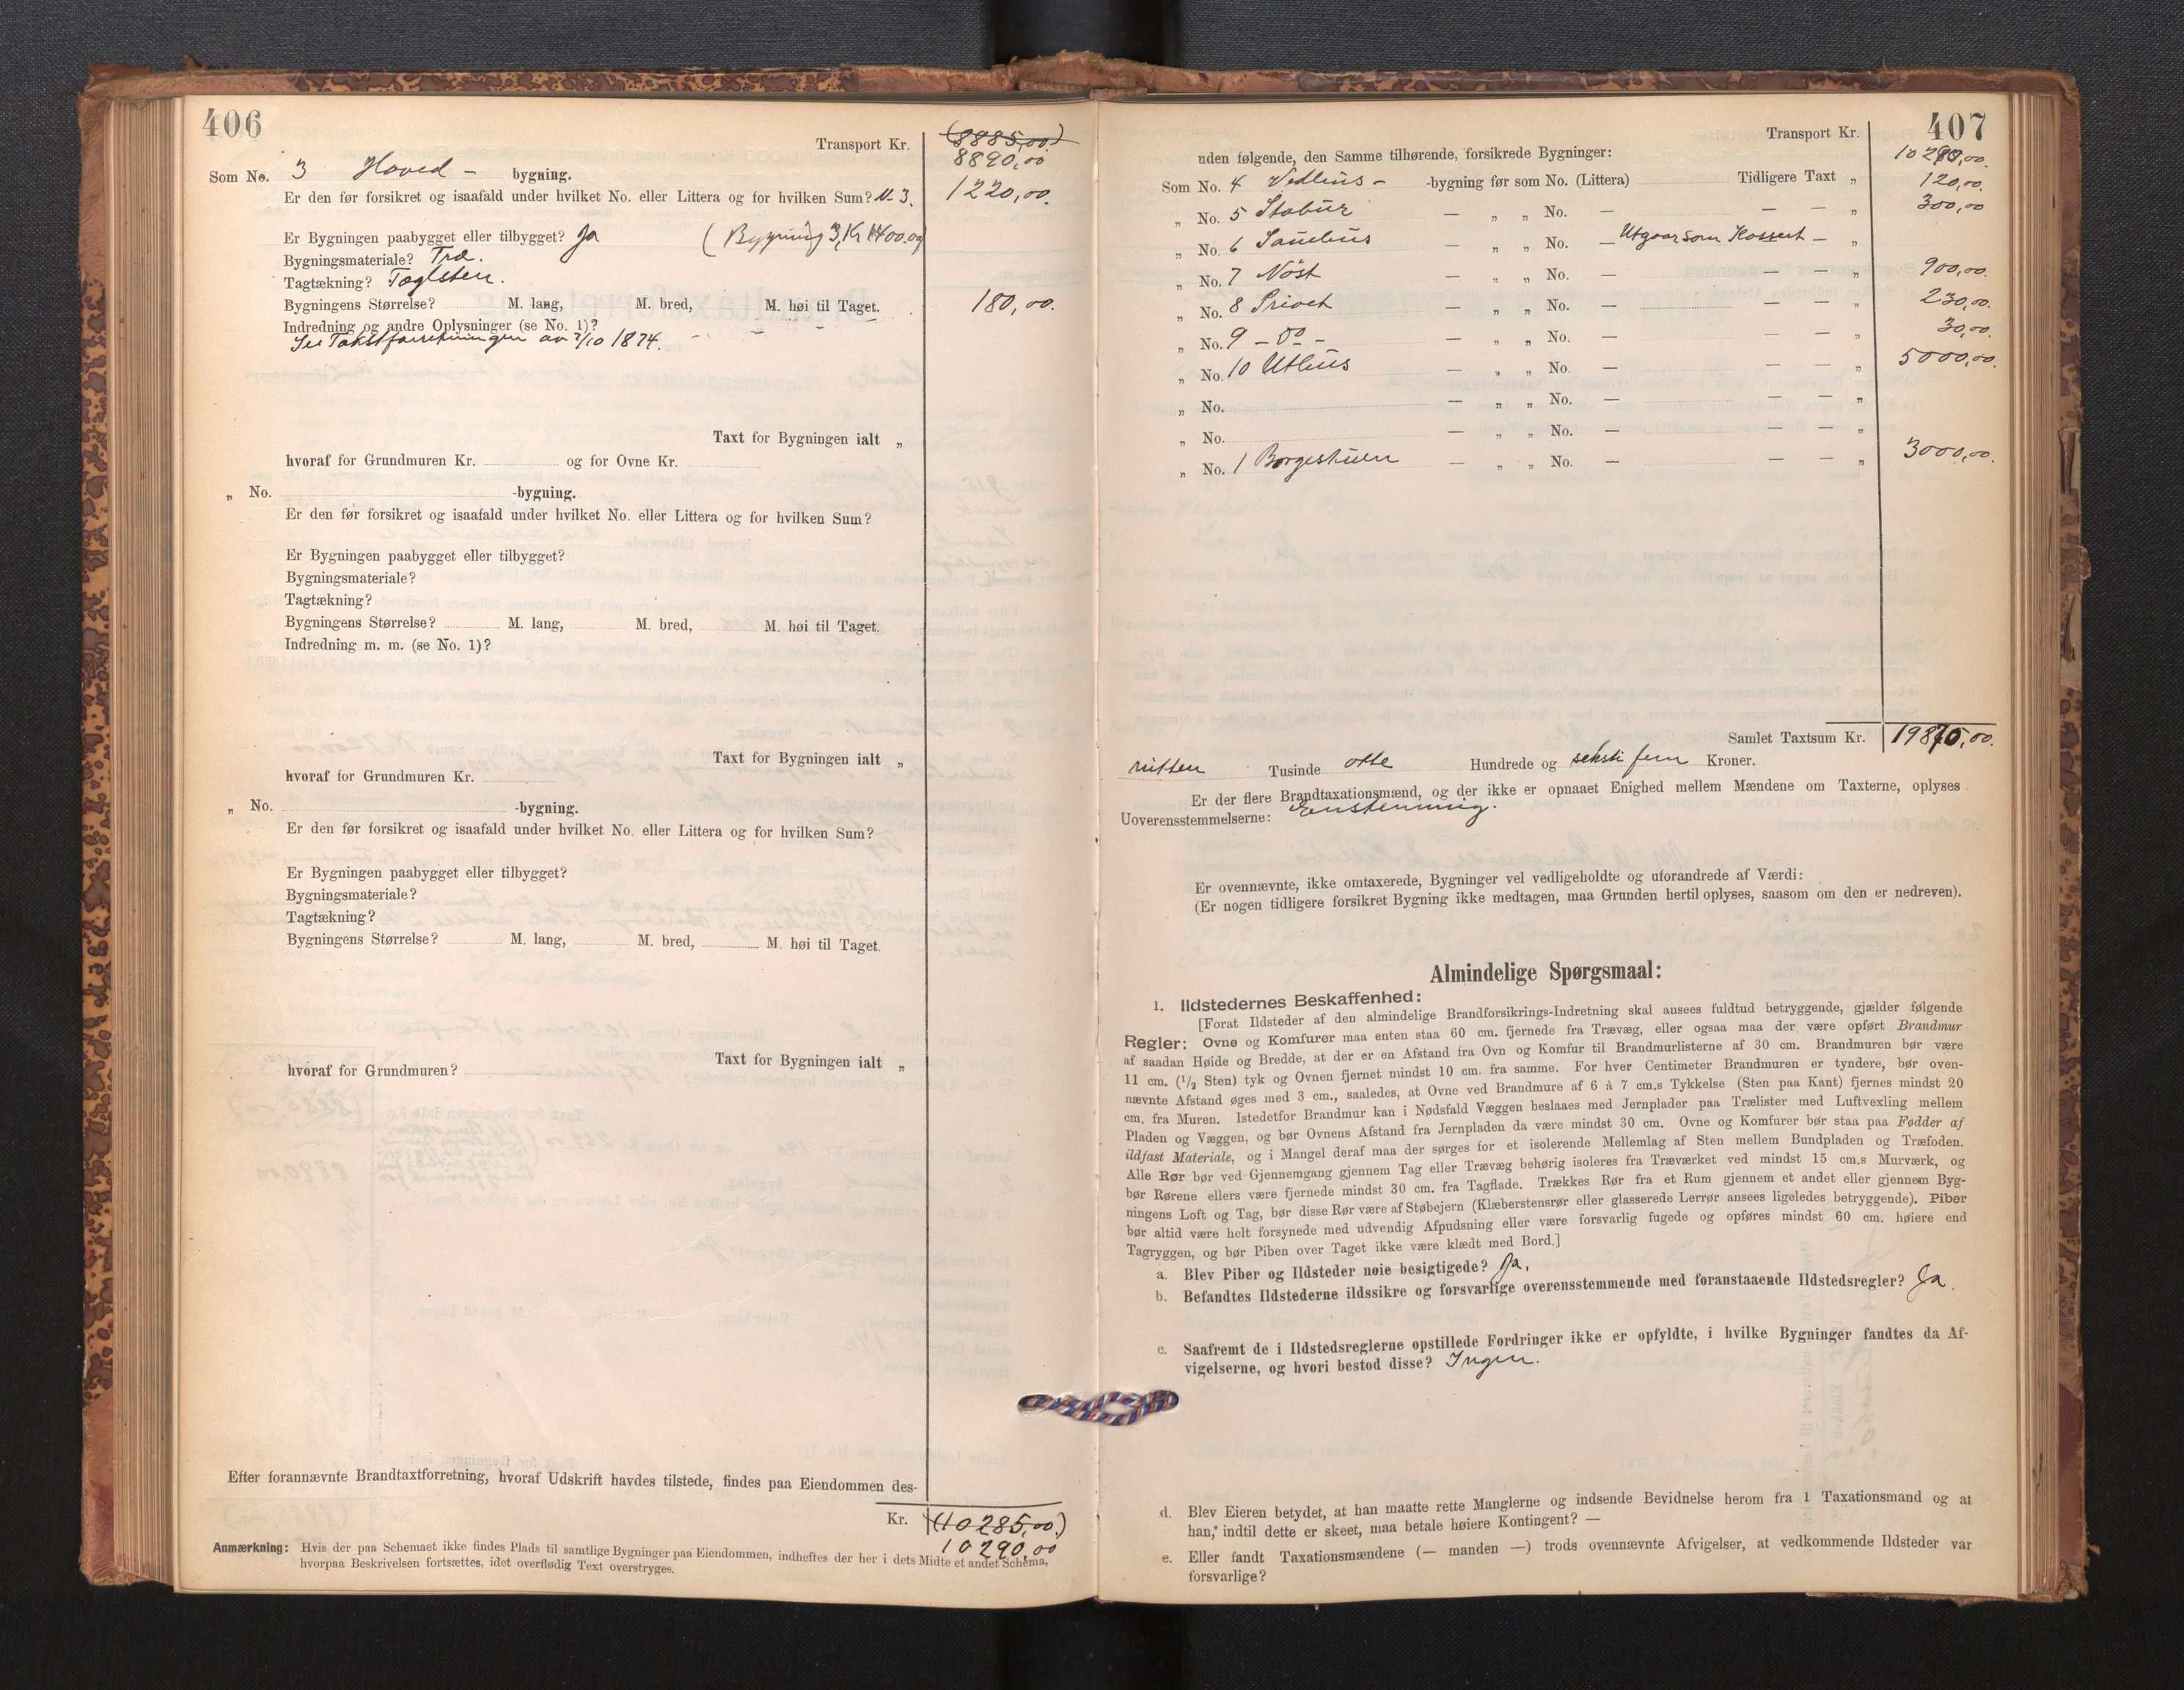 406
Transport Kr. (8885,00)
8890,00
Som No. 3 Hoved - bygning.
Er den før forsikret og isaafald under hvilket No. eller Littera og for hvilken Sum? N. 3. 1220,00.
Er Bygningen paabygget eller tilbygget? Ja (Bygning 3, Kr 1400.00)
Bygningsmateriale? Træ.
Tagtækning? Taglsten.
Bygningens Størrelse? M. lang, M. bred, M. høi til Taget. 180,00.
Indredning og andre Oplysninger (se No. 1)?
Se Takstforretningen av 2/10 1874.
Taxt for Bygningen ialt „
hvoraf for Grundmuren Kr. og for Ovne Kr.
„ No. -bygning.
Er den før forsikret og isaafald under hvilket No. eller Littera og for hvilken Sum?
Er Bygningen paabygget eller tilbygget?
Bygningsmateriale?
Tagtækning?
Bygningens Størrelse? M. lang, M. bred, M. høi til Taget.
Indredning m. m. (se No. 1)?
Taxt for Bygningen ialt „
hvoraf for Grundmuren Kr.
„ No. -bygning.
Er den før forsikret og isaafald under hvilket No. eller Littera og for hvilken Sum?
Er Bygningen paabygget eller tilbygget?
Bygningsmateriale?
Tagtækning?
Bygningens Størrelse? M. lang, M. bred, M. høi til Taget.
Taxt for Bygningen ialt „
hvoraf for Grundmuren?
Efter forannævnte Brandtaxtforretning, hvoraf Udskrift havdes tilstede, findes paa Eiendommen des-
Kr. (10285,00)
10290,00
Anmærkning: Hvis der paa Schemaet ikke findes Plads til samtlige Bygninger paa Eiendommen, indheftes der her i dets Midte et andet Schema,
hvorpaa Beskrivelsen fortsættes, idet overflødig Text overstryges.
407
Transport Kr. 10290,00.
uden følgende, den Samme tilhørende, forsikrede Bygninger:
Som No. 4 Vedhus - -bygning før som No. (Littera) Tidligere Taxt „ 120,00.
„ No. 5 Stabur — „ „ No. — — — „ 300,00
„ No. 6 Sauehus — „ „ No. — Utgaar som Kassert — „
„ No. 7 Nöst — „ „ No. — — — „ 900,00.
„ No. 8 Privet — „ „ No. — — — „ 230,00.
„ No. 9 - Do - — „ „ No. — — „ 30,00.
„ No. 10 Uthus — „ „ No. — — — „ 5000,00.
„ No. — „ „ No. — — — „
„ No. — „ „ No. — — — „
„ No. 1 Borgestuen — „ „ No. — — — „ 3000,00.
Samlet Taxtsum Kr. 19870,00.
nitten Tusinde otte Hundrede og seksti fem Kroner.
Er der flere Brandtaxationsmænd, og der ikke er opnaaet Enighed mellem Mændene om Taxterne, oplyses
Uoverensstemmelserne: Enstemmig.
Er ovennævnte, ikke omtaxerede, Bygninger vel vedligeholdte og uforandrede af Værdi:
(Er nogen tidligere forsikret Bygning ikke medtagen, maa Grunden hertil oplyses, saasom om den er nedreven).
Almindelige Spørgsmaal:
1. Ildstedernes Beskaffenhed:
[Forat Ildsteder af den almindelige Brandforsikrings-Indretning skal ansees fuldtud betryggende, gjælder følgende
Regler: Ovne og Komfurer maa enten staa 60 cm. fjernede fra Trævæg, eller ogsaa maa der være opført Brandmur
af saadan Høide og Bredde, at der er en Afstand fra Ovn og Komfur til Brandmurlisterne af 30 cm. Brandmuren bør være
11 cm. (1/2 Sten) tyk og Ovnen fjernet mindst 10 cm. fra samme. For hver Centimeter Brandmuren er tyndere, bør oven-
nævnte Afstand øges med 3 cm., saaledes, at Ovne ved Brandmure af 6 à 7 cm.s Tykkelse (Sten paa Kant) fjernes mindst 20
cm. fra Muren. Istedetfor Brandmur kan i Nødsfald Væggen beslaaes med Jernplader paa Trælister med Luftvexling mellem
Pladen og Væggen, og bør Ovnens Afstand fra Jernpladen da være mindst 30 cm. Ovne og Komfurer bør staa paa Fødder af
ildfast Materiale, og i Mangel deraf maa der sørges for et isolerende Mellemlag af Sten mellem Bundpladen og Træfoden.
Alle Rør bør ved Gjennemgang gjennem Tag eller Trævæg behørig isoleres fra Træværket ved mindst 15 cm.s Murværk, og
bør Rørene ellers være fjernede mindst 30 cm. fra Tagflade. Trækkes Rør fra et Rum gjennem et andet eller gjennem Byg-
ningens Loft og Tag, bør disse Rør være af Støbejern (Klæberstensrør eller glasserede Lerrør ansees ligeledes betryggende). Piber
bør altid være helt forsynede med udvendig Afpudsning eller være forsvarlig fugede og opføres mindst 60 cm. høiere end
Tagryggen, og bør Piben over Taget ikke være klædt med Bord.]
a. Blev Piber og Ildsteder nøie besigtigede? Ja.
b. Befandtes Ildstederne ildssikre og forsvarlige overensstemmende med foranstaaende Ildstedsregler? Ja.
c. Saafremt de i Ildstedsreglerne opstillede Fordringer ikke er opfyldte, i hvilke Bygninger fandtes da Af-
vigelserne, og hvori bestod disse? Ingen.
d. Blev Eieren betydet, at han maatte rette Manglerne og indsende Bevidnelse herom fra 1 Taxationsmand og at
han, indtil dette er skeet, maa betale høiere Kontingent? —
e. Eller fandt Taxationsmændene (— manden —) trods ovennævnte Afvigelser, at vedkommende Ildsteder var
forsvarlige?